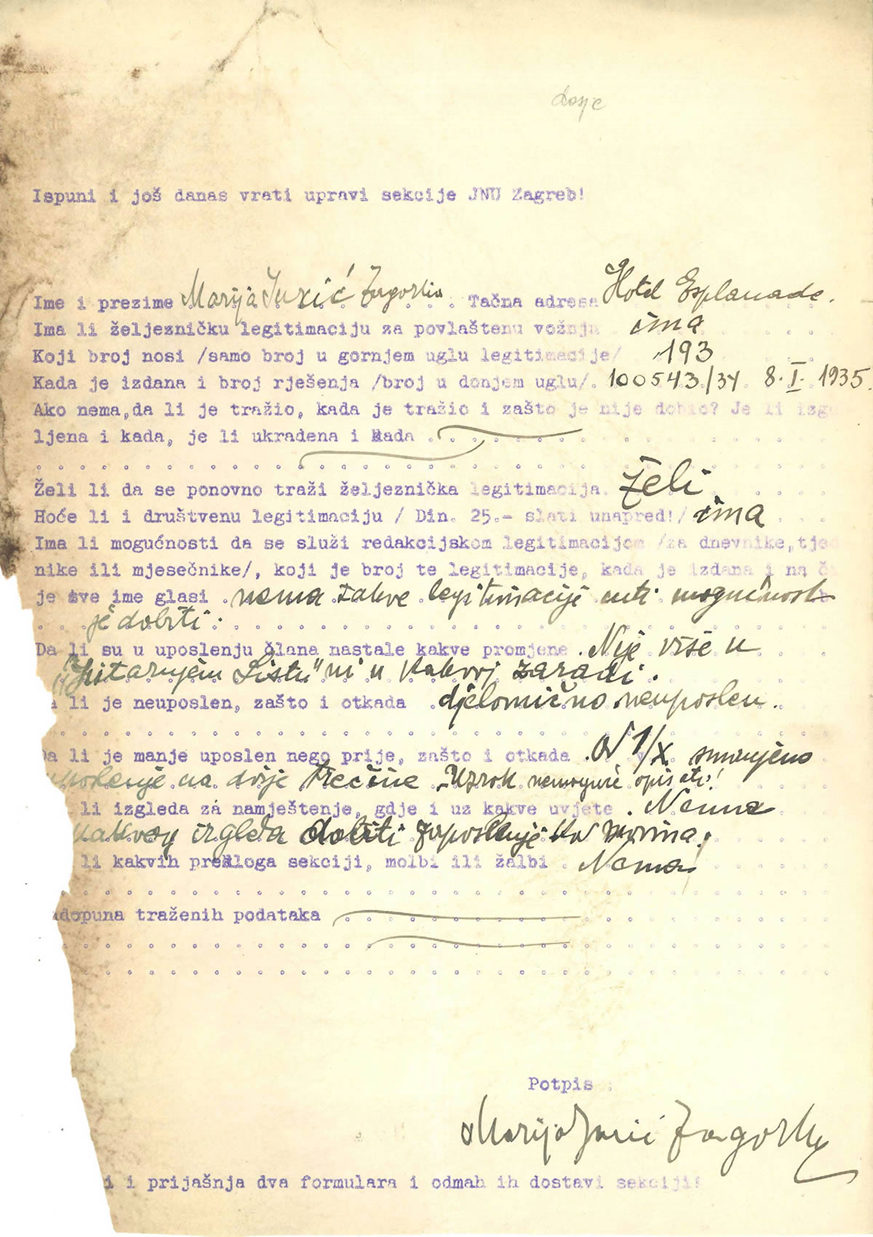 dosje
Ispuni i još danas vrati upravi sekcije JNU Zagreb!
Ime i prezime Marija Jurić Zagorka . Tačna adresa Hotel Esplanade.
Ima li željezničku legitimaciju za povlaštenu vožnju ima
Koji broj nosi /samo broj u gornjem uglu legitimacije/ 193
Kada je izdana i broj rješenja /broj u donjem uglu/. 100543/34 8.I.1935.
Ako nema,da li je tražio, kada je tražio i zašto je nije dobio? Je li izgu
ljena i kada, je li ukradena i kada
Želi li da se ponovno traži željeznička legitimacija želi
Hoće li i društvenu legitimaciju / Din. 25.- slati unapred!/ ima
Ima li mogućnosti da se služi redakcijskom legitimacijom /za dnevnike,tje
nike ili mjesečnike/, koji je broj te legitimacije, kada je izdana i na č
je sve ime glasi nema takve legitimacije niti mogućnosti
je dobiti.
Da li su u uposlenju člana nastale kakve promjene . Nije više u
Listu" ni u kakvoj zaradi.
li je neuposlen, zašto i otkada djelomično neuposlen.
Da li je manje uposlen nego prije, zašto i otkada . Od 1/X smanjeno
uposlenje na dvije trećine Uzrok nemoguće opisati!
li izgleda za namještenje, gdje i uz kakve uvjete . Nema
izgleda dobiti zaposlenje
li kakvih predloga sekciji, molbi ili žalbi . Nema!
dopuna traženih podataka
Potpis :
Marija Jurić Zagorka
i i prijašnja dva formulara i odmah ih dostavi sekciji!